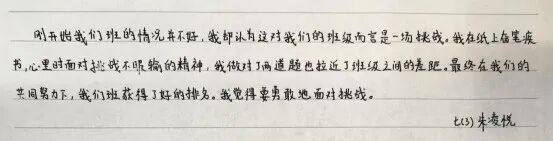 刚开始我们班的情况并不好，我却认为这对我们的班级而言是一场挑战。我在纸上奋笔疾
书，心里时面对挑战不服输的精神，我做对了两道题也拉近了班级之间的差距。最终在我们的
共同努力下，我们班获得了好的排名。我觉得要勇敢地面对挑战。
七(3) 朱凌悦